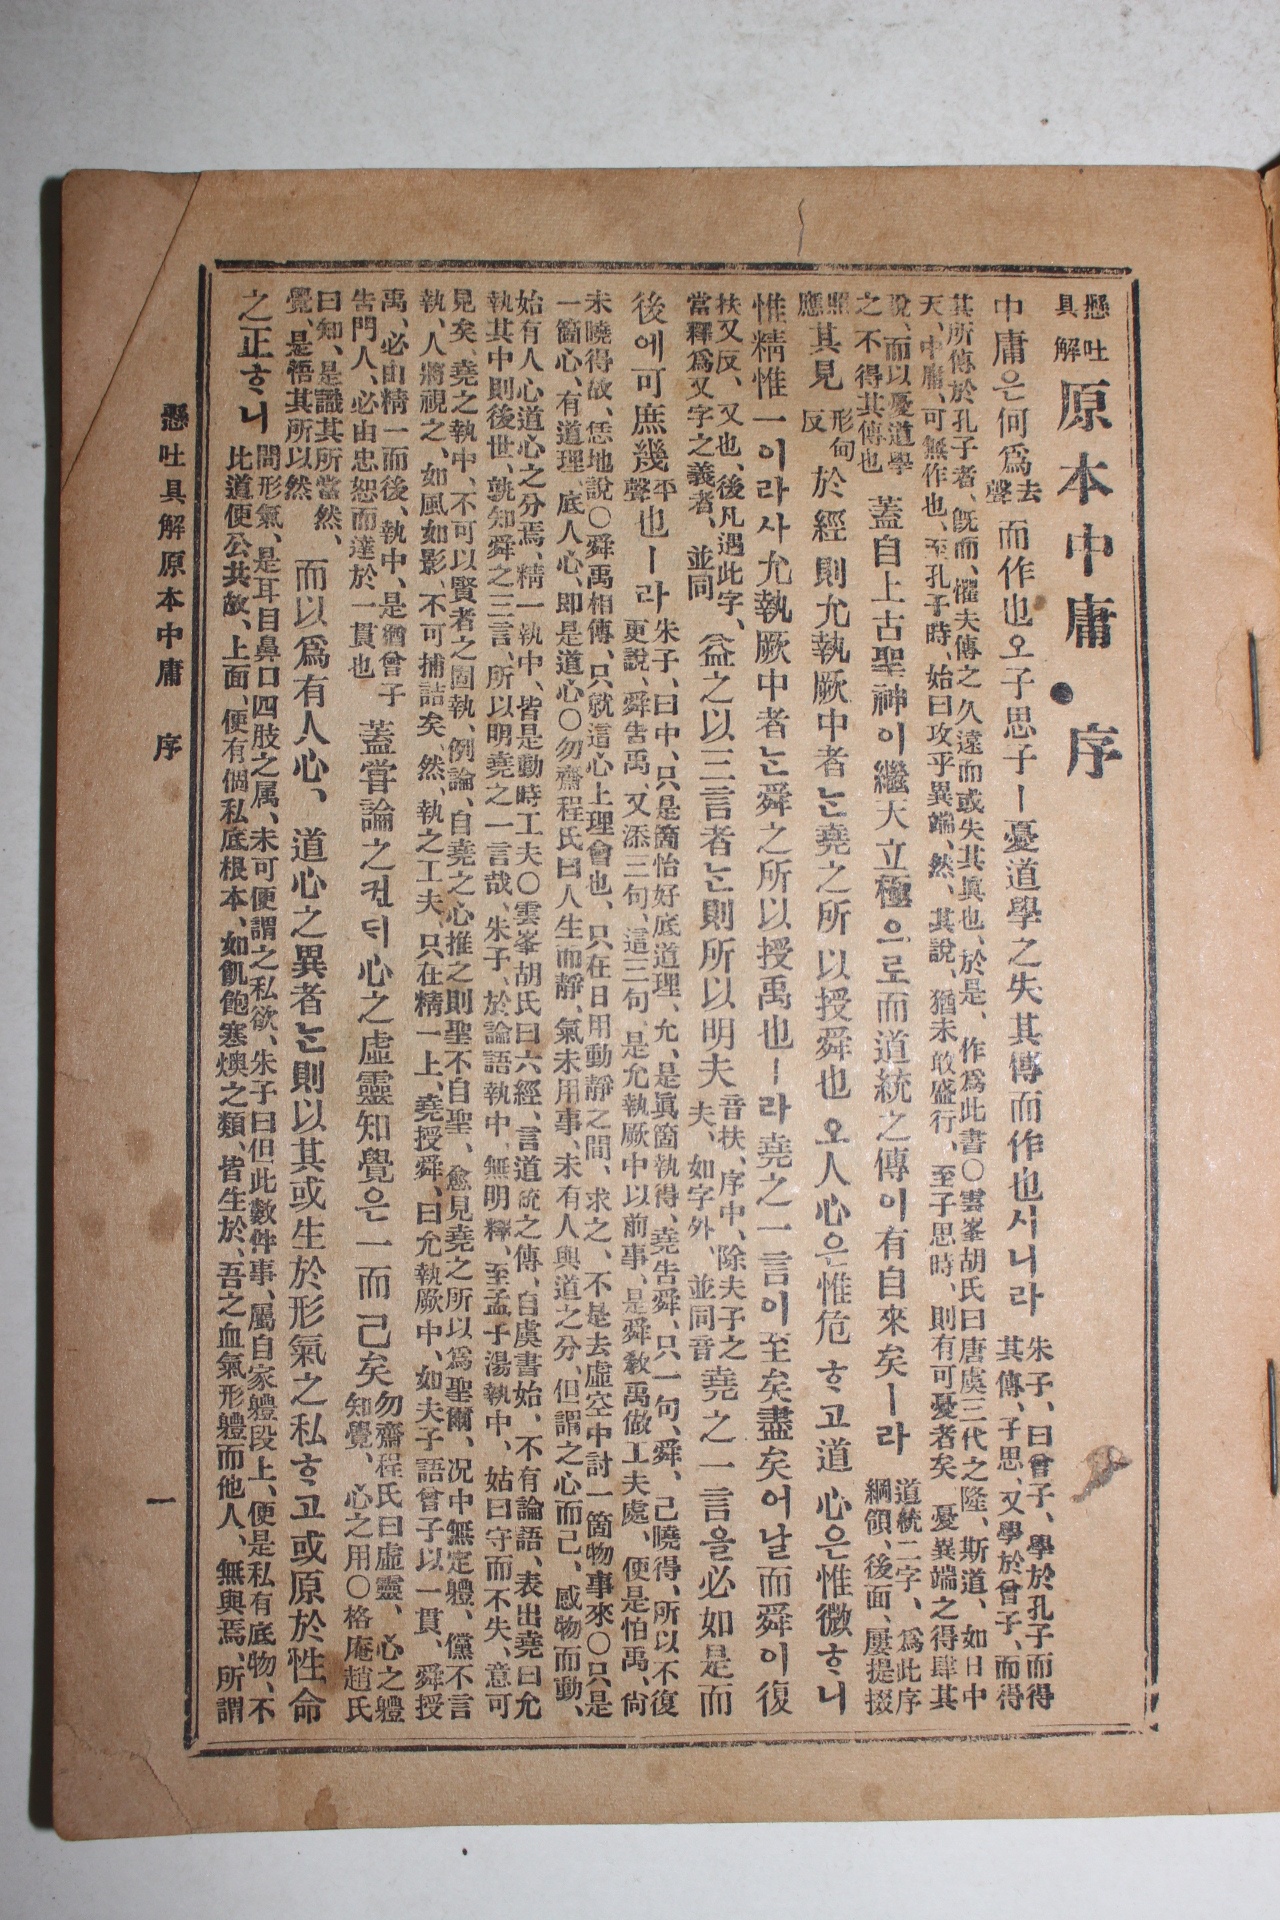 懸吐具解 原本中庸●序
中庸은何爲去聲而作也오子思子ㅣ憂道學之失其傳而作也시니라朱子、曰曾子、學於孔子而得其傳、子思、又學於曾子、而得
其所傳於孔子者、旣而、懼夫傳之久遠而或失其眞也、於是、作爲此書〇雲峯胡氏曰唐虞三代之隆、斯道、如日中
天、中庸、可無作也、至孔子時、始曰攻乎異端、然、其說、猶未敢盛行、至子思時、則有可憂者矣、憂異端之得肆其
說、而以憂道學之不得其傳也蓋自上古聖神이繼天立極으로而道統之傳이有自來矣ㅣ라道統二字、爲此序綱領、後面、屢提掇
照應其見形甸反於經則允執厥中者는堯之所以授舜也오人心은惟危ᄒᆞ고道心은惟微ᄒᆞ니
惟精惟一이라사允執厥中者는舜之所以授禹也ㅣ라堯之一言이至矣盡矣어날而舜이復
扶又反、又也、後凡遇此字、當釋爲又字之義者、並同益之以三言者는則所以明夫音扶、序中、除夫子之夫、如字外、並同音堯之一言을必如是而
後에可庶幾平聲也ㅣ라朱子、曰中、只是箇恰好底道理、允、是眞箇執得、堯告舜、只一句、舜、已曉得、所以不復更說、舜告禹、又添三句、這三句、是允執厥中以前事、是舜敎禹做工夫處、便是怕禹、尙
未曉得故、恁地說〇舜禹相傳、只就這心上理會也、只在日用動靜之間、求之、不是去虛空中討一箇物事來〇只是
一箇心、有道理、底人心、即是道心〇勿齋程氏曰人生而靜、氣未用事、未有人與道之分、但謂之心而已、感物而動、
始有人心道心之分焉、精一執中、皆是動時工夫〇雲峯胡氏曰六經、言道統之傳、自虞書始、不有論語、表出堯曰允
執其中則後世、孰知舜之三言、所以明堯之一言哉、朱子、於論語執中、無明釋、至孟子湯執中、姑曰守而不失、意可
見矣、堯之執中、不可以賢者之固執、例論、自堯之心推之則聖不自聖、愈見堯之所以爲聖爾、况中無定軆、儻不言
執、人將視之、如風如影、不可捕詰矣、然、執之工夫、只在精一上、堯授舜、曰允執厥中、如夫子語曾子以一貫、舜授
禹、必由精一而後、執中、是猶曾子告門人、必由忠恕而達於一貫也蓋嘗論之컨ᄃᆡ心之虛靈知覺은一而已矣勿齋程氏曰虛靈、心之軆知覺、心之用〇格庵趙氏
曰知、是識其所當然、覺、是悟其所以然而以爲有人心、道心之異者는則以其或生於形氣之私ᄒᆞ고或原於性命
之正ᄒᆞ니問形氣、是耳目鼻口四肢之属、未可便謂之私欲、朱子曰但此數件事、屬自家軆段上、便是私有底物、不比道便公共故、上面、便有個私底根本、如飢飽寒燠之類、皆生於、吾之血氣形軆而他人、無與焉、所謂
懸吐具解原本中庸 序
一